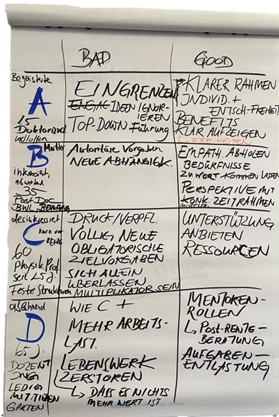 BAD
GOOD
A
15
Doktorand
EINGRENZEN
EGAL IDEEN IGNOR-
IEREN
TOP-DOWN Führung
KLARER RAHMEN
INDIVID. +
ENTSCH-FREIHEIT
BENEFITS
KLAR AUFZEIGEN
B
Autoritäre Vorgaben
NEUE ABHÄNGIGK.
EMPATH ABHOLEN
BEDÜRFNISSE
ZU WORT KOMMEN LASSEN
PERSPEKTIVE MIT
KONK ZEITRAHMEN
desinteressiert
C
60
Physik Prof
seit 25 J
Feste Strukturen
DRUCK/VERPFL
VÖLLIG NEUE
OBLIGATORISCHE
ZIELVORGABEN
SICH ALLEIN
ÜBERLASSEN
MULTIPLIKATOR SEIN
UNTERSTÜTZUNG
ANBIETEN
RESSOURCEN
ablehnend
D
65 J.
DOZENT
LEDIG
WIE C +
MEHR ARBEITS-
LAST.
LEBENSWERK
ZERSTÖREN
↳ DASS ES NICHTS
MEHR WERT IST
MENTOREN-
ROLLEN
↳ POST-RENTE-
BERATUNG
AUFGABEN-
ENTLASTUNG